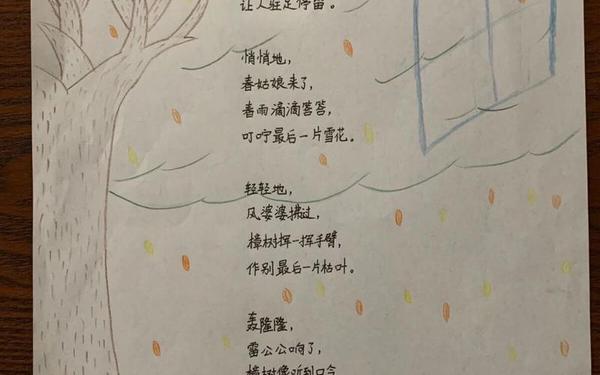 让人驻足停留。
悄悄地，
春姑娘来了，
春雨滴滴答答，
叮咛最后一片雪花。
轻轻地，
风婆婆拂过，
樟树挥一挥手臂，
作别最后一片枯叶。
轰隆隆，
雷公公响了，
樟树像听到口令